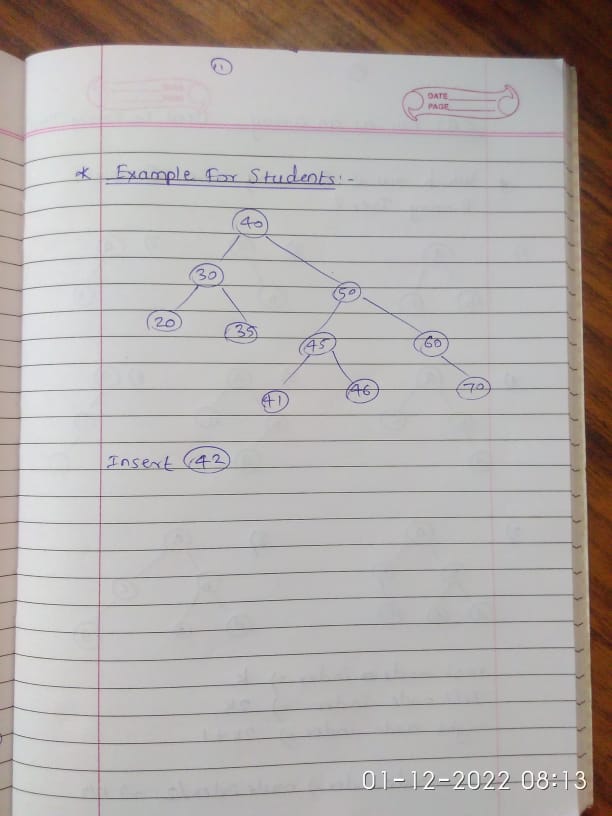 11
DATE
PAGE
* Example For Students:-
40
30
50
20
35
45
60
41
46
70
Insert 42
01-12-2022 08:13